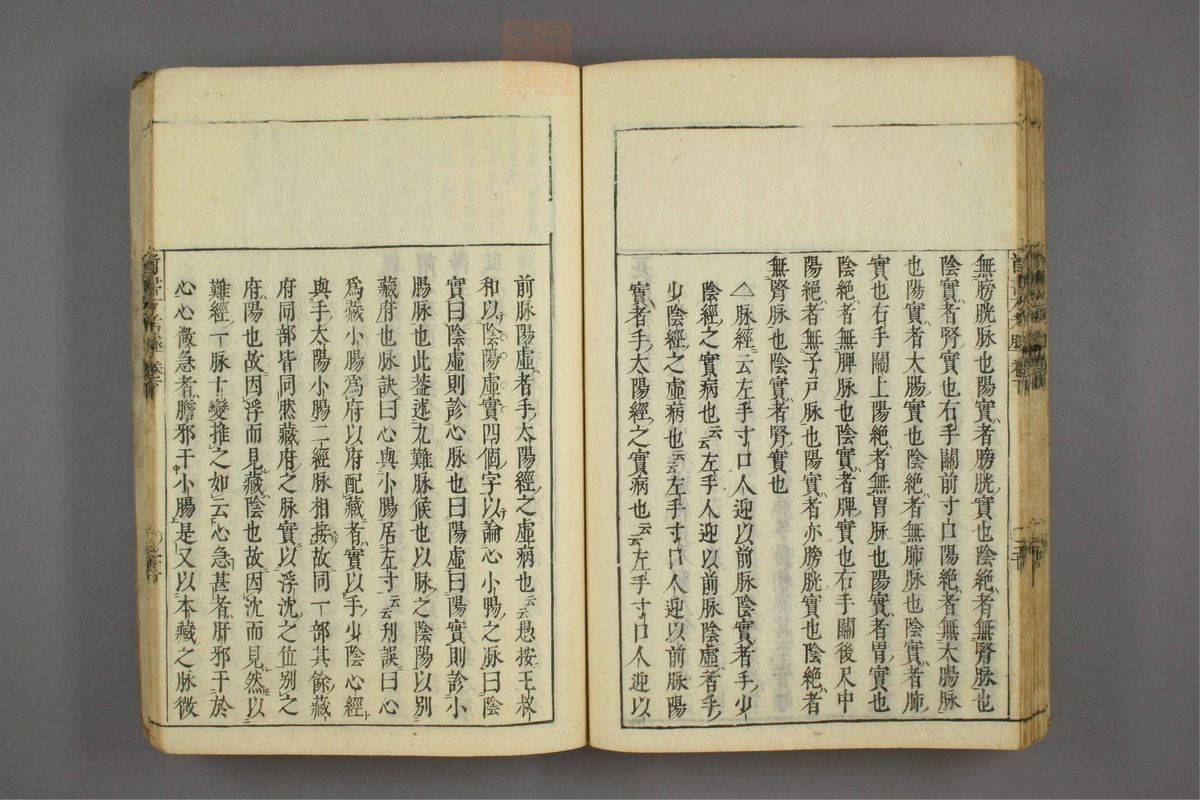 無膀胱脉也陽實者膀胱實也陰絶者無腎脉也
陰實者腎實也右手關前寸口陽絶者無大膓脉
也陽實者大膓實也陰絶者無肺脉也陰實者肺
實也右手關上陽絶者無胃脉也陽實者胃實也
陰絶者無脾脉也陰實者脾實也右手關後尺中
陽絶者無子戸脉也陽實者亦膀胱實也陰絶者
無腎脉也陰實者腎實也
△脉經云左手寸口人迎以前脉陰實者手少
陰經之實病也云云左手人迎以前脉陰虛者手
少陰經之虛病也云云左手寸口人迎以前脉陽
實者手太陽經之實病也云云左手寸口人迎以
前脉陽虛者手太陽經之虛病也云云愚按王叔
和以陰陽虛實四個字以論心小膓之脉曰陰
實曰陰虛則診心脉也曰陽虛曰陽實則診小
膓脉也此蓋述九難脉候也以脉之陰陽以別
藏府也脉訣曰心與小膓居左寸云云刋誤曰心
爲藏小膓爲府以府配藏者實以手少陰心經
與手太陽小膓二經脉相接故同一部其餘藏
府同部皆同然藏府之脉實以浮沈之位別之
府陽也故因浮而見藏陰也故因沈而見然以
難經一脉十變推之如云心急甚者肝邪干於
心心微急者膽邪干小膓是又以本藏之脉微